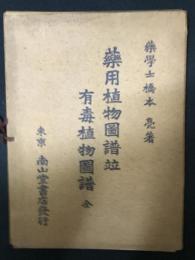 藥學士 橋本 亮著
藥用植物圖譜竝
有毒植物圖譜 全
東京 南山堂書店發行